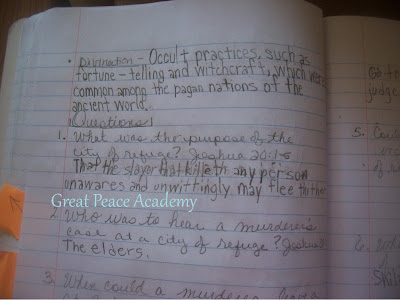 • Divination - Occult practices, such as
fortune-telling and witchcraft, which were
common among the pagan nations of the
ancient world.
Questions
1. What was the purpose of the
city of refuge? Joshua 20:1-6
That the slayer that killeth any person
unawares and unwittingly may flee thither
Great Peace Academy
2. Who was to hear a murderer's
case at a city of refuge? Joshua
The elders.
3. When could a murderer
judge
5.
6.